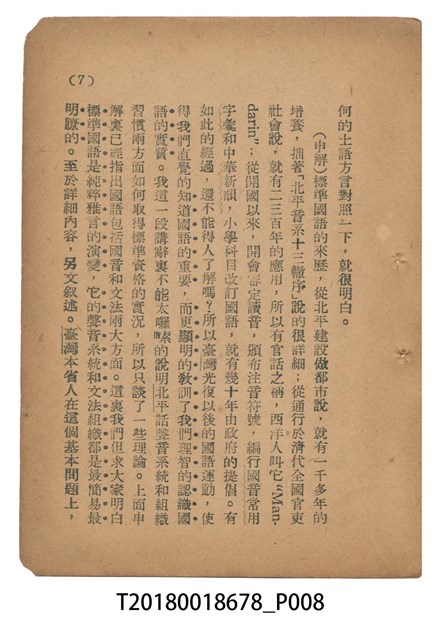 何的土語方言對照一下，就很明白。
（申解）標準國語的來歷，從北平建設做都市說，就有一千多年的
培養，拙著「北平音系十三轍序」說的很詳細；從通行於清代全國官吏
社會說，就有二三百年的應用，所以有官話之稱，西洋人叫它“Man-
darin”；從開國以來，開會審定讀音，頒布注音符號，編行國音常用
字彙和中華新韻，小學科目改訂國語，就有幾十年由政府的提倡。有
如此的經過，還不能得人了解嗎？所以臺灣光復以後的國語運動，使
得我們直覺的知道國語的重要，而更顯明的教訓了我們理智的認識國
語的實質。我這一段講辭裏不能太囉嗦的說明北平話聲音系統和組織
習慣兩方面如何取得標準資格的實況，所以只談了一些理論。上面申
解裏已經指出國語包括國音和文法兩大方面。這裏我們但求大家明白
標準國語是純粹雅言的演變，它的聲音系統和文法組織都是最簡易最
明瞭的。至於詳細內容，另文敘述。臺灣本省人在這個基本問題上，
（7）
T20180018678_P008